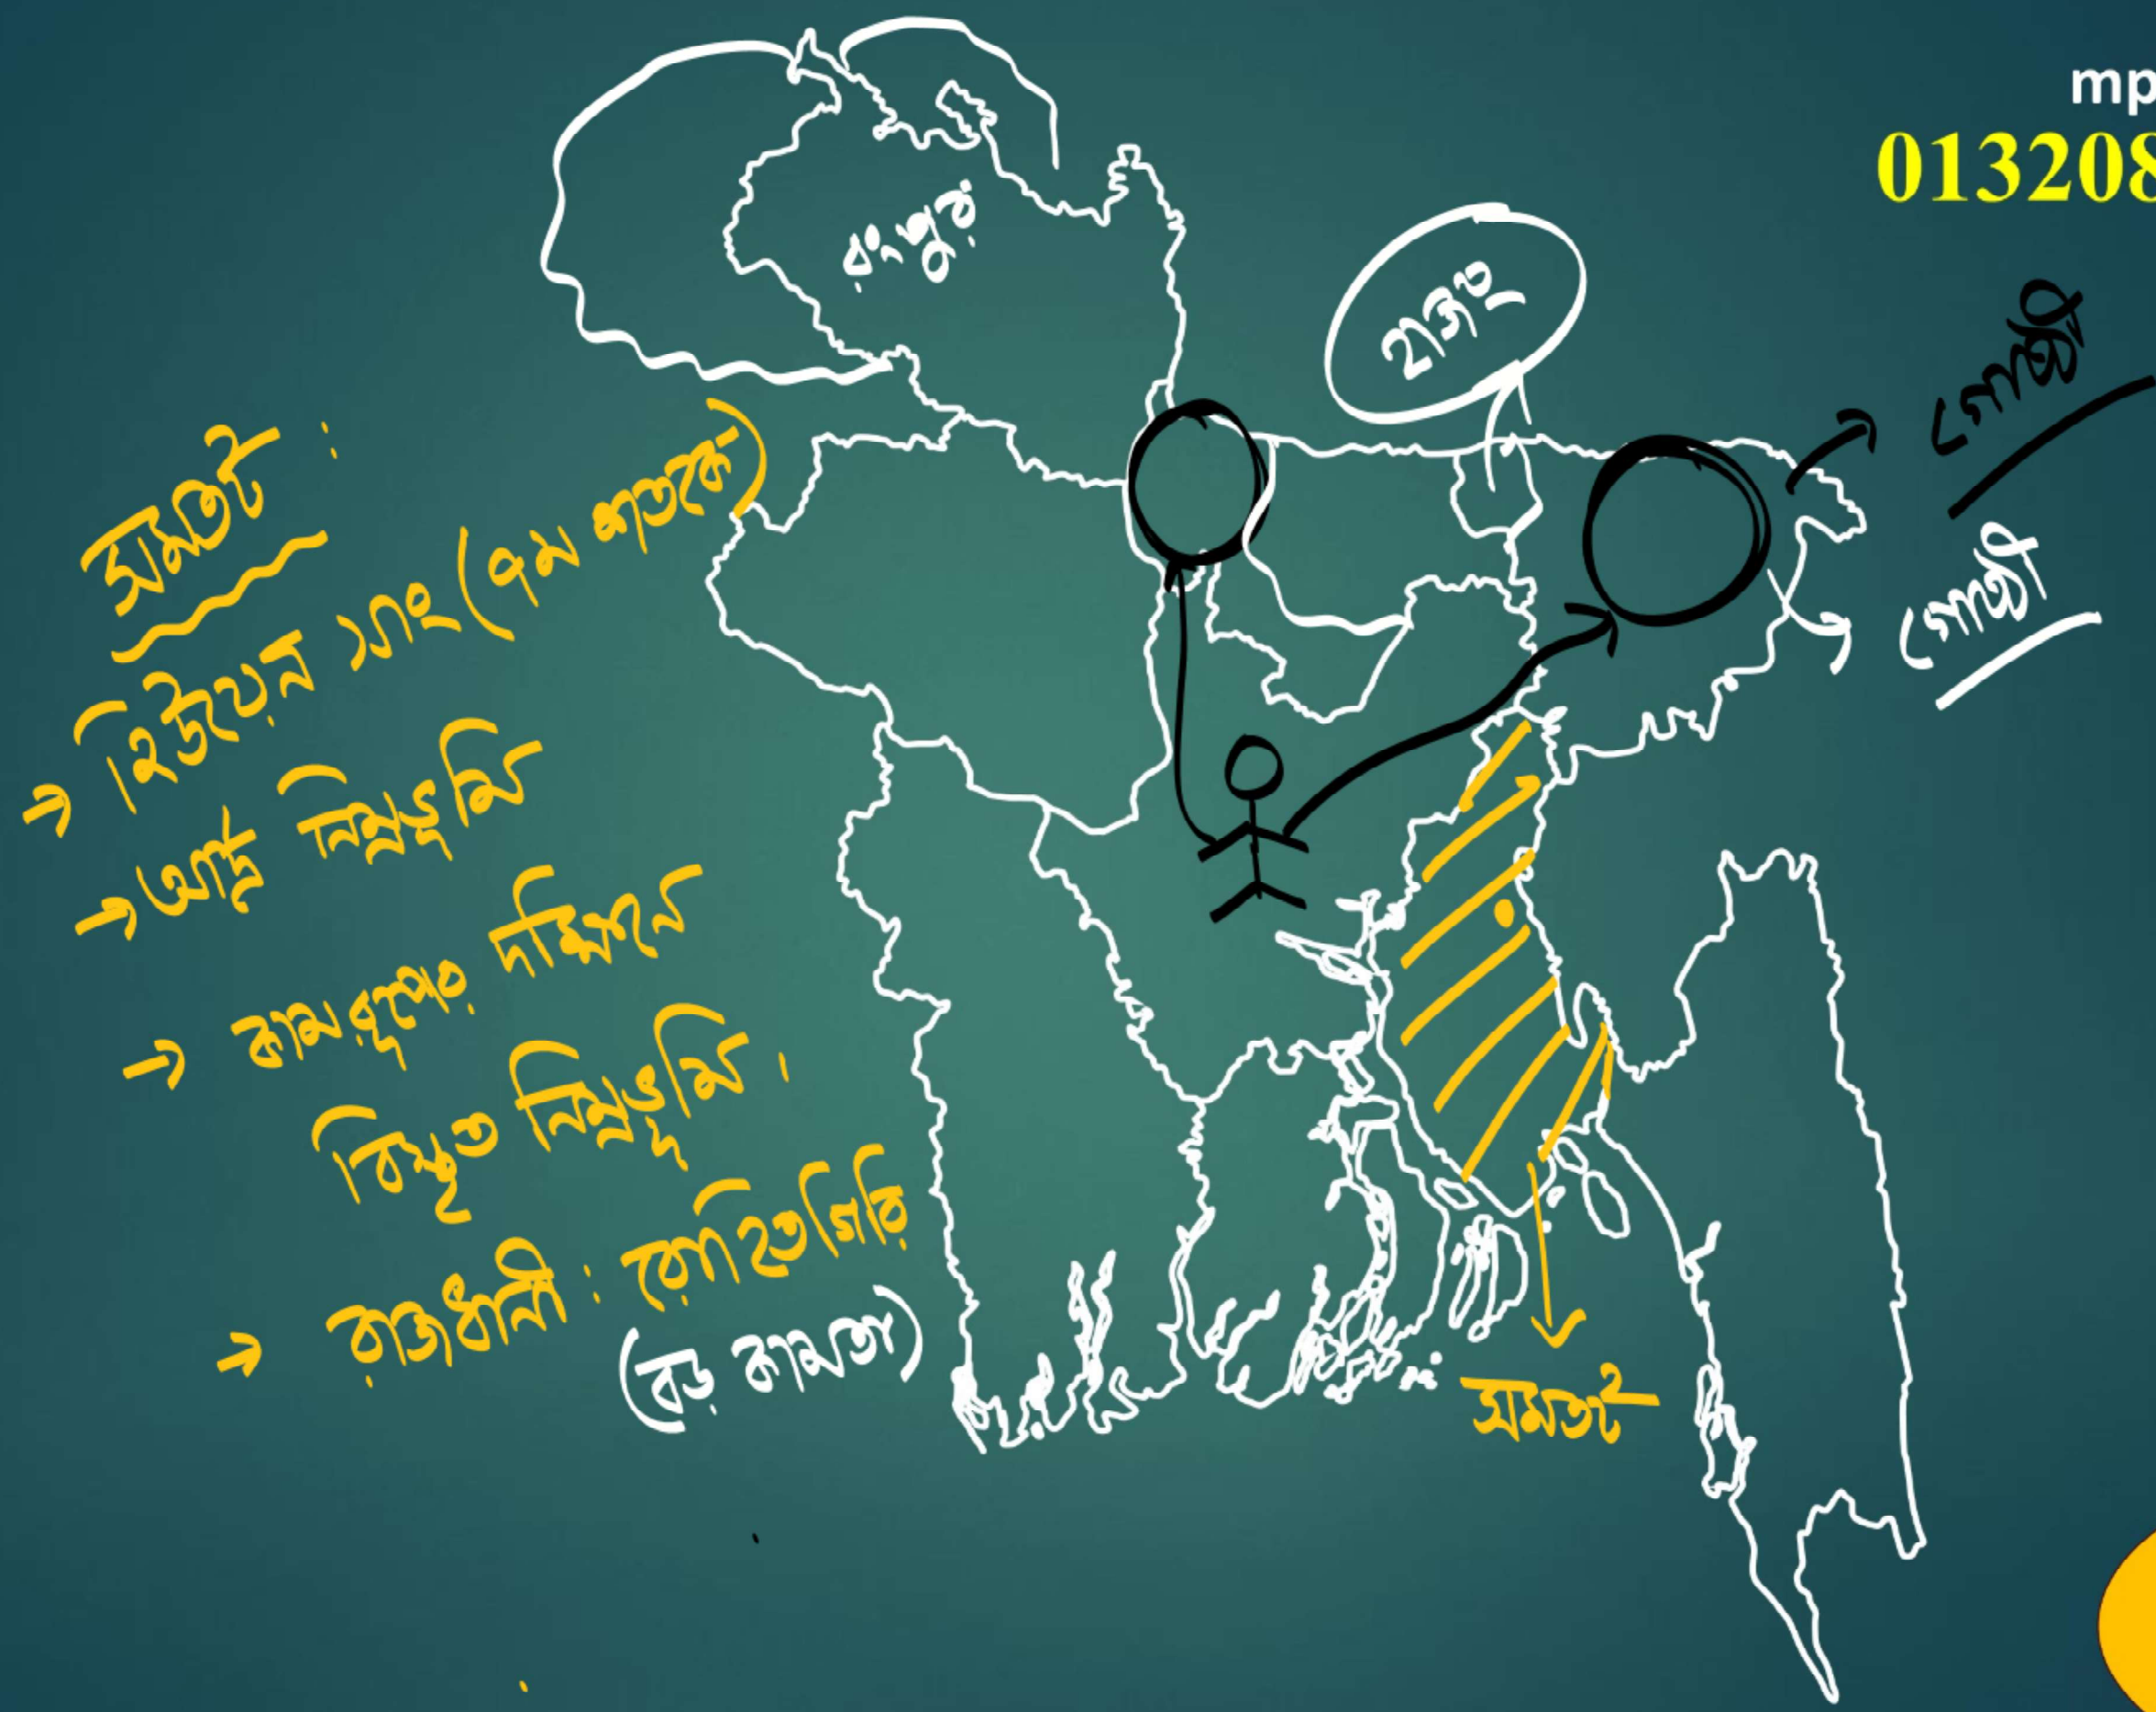 mp
013208
রংপুর
হাজং
গোষ্ঠী
গোষ্ঠী
সমতট :
→ হিউয়েন সাং (৭ম শতকে)
→ আর্দ্র নিম্নভূমি
→ কামরূপের দক্ষিনে
বিস্তৃত নিম্নভূমি।
→ রাজধানী : রোহিতগিরি
(বড় কামতা)
সমতট